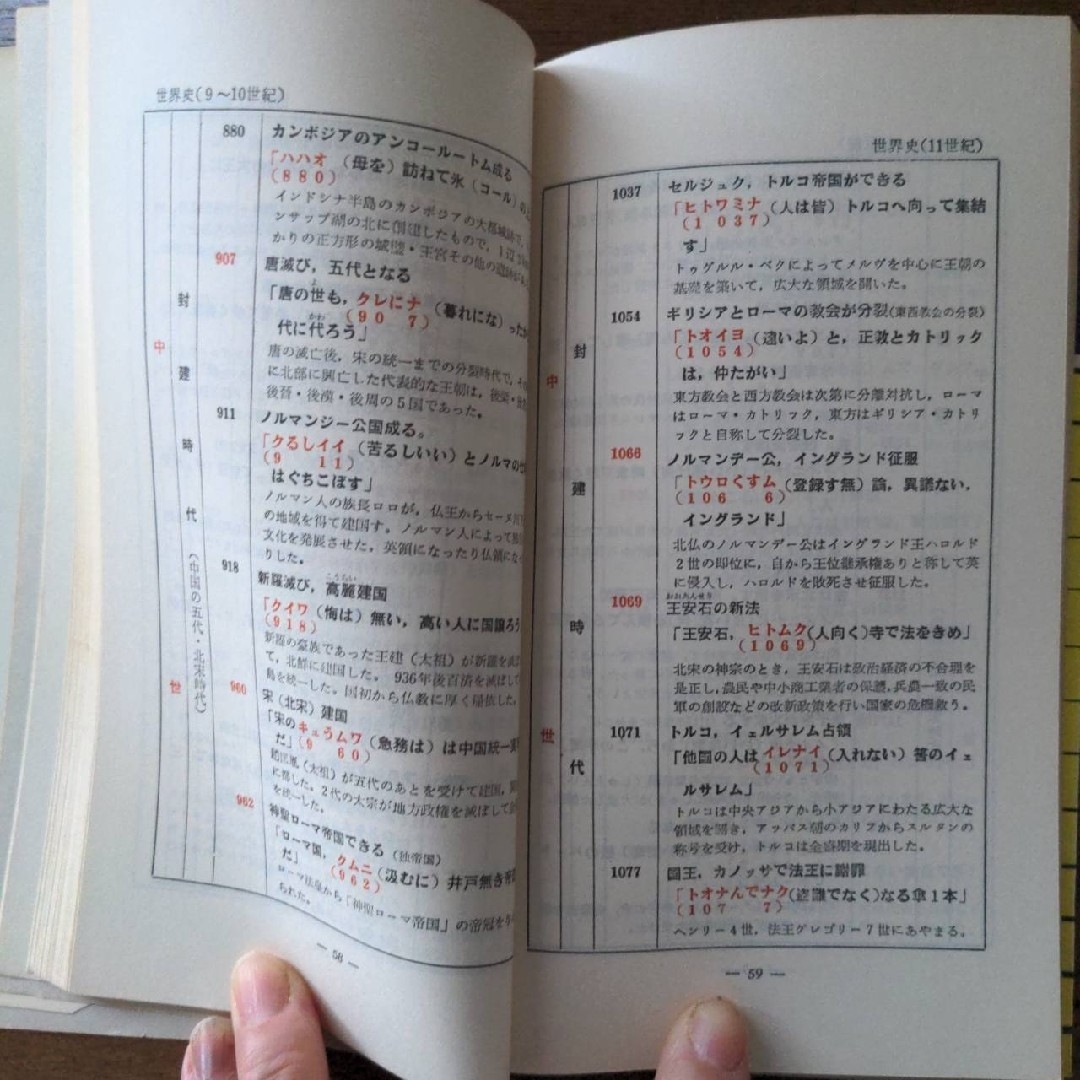 世界史(9〜10世紀)
中世
封建時代
(中国の五代・北宋時代)
880 カンボジアのアンコールートム成る
「ハハオ(母を)訪ねて氷(コール)の
(880)
インドシナ半島のカンボジアの大都城跡で,
ンサップ湖の北に創建したもので,1辺
かりの正方形の城壁・王宮その他の
907 唐滅び,五代となる
「唐の世も,クレにナ(暮れにな)ったか
よ
(90 7)
代に代ろう」
かわ
唐の滅亡後,宋の統一までの分裂時代で,その
に北部に興亡した代表的な王朝は,後梁・後
後晉・後漢・後周の5国であった。
911 ノルマンジー公国成る。
「クるしイイ(苦るしいい)とノルマの
(9 11)
はぐちこぼす」
ノルマン人の族長ロロが,仏王からセーヌ
の地域を得て建国す,ノルマン人によって
文化を発展させた,英領になったり仏領にな
りした。
918 新羅滅び,高麗建国
こうらい
「クイワ(悔は)無い,高い人に国譲ろう
(918)
新羅の豪族であった王建(太祖)が新羅を滅
て,北鮮に建国した。936年後百済を滅ぼして
島を統一した。国初から仏教に厚く帰依した。
960 宋(北宋)建国
「宋のキュうムワ(急務は)は中国統一
(9 60)
だ」
趙匡胤(太祖)が五代のあとを受けて建国,
に都した。2代の太宗が地方政権を滅ぼして
を統一した。
962 神聖ローマ帝国できる(独帝国)
「ローマ国,クムニ(汲むに)井戸無き
(962)
だ」
ローマ法皇から「神聖ローマ帝国」の帝冠を
られた。
— 58 —
世界史(11世紀)
中世
封建時代
1037 セルジュク,トルコ帝国ができる
「ヒトワミナ(人は皆)トルコへ向って集結
(1 037)
す」
トゥグルル・ベクによってメルヴを中心に王朝の
基礎を築いて,広大な領域を開いた。
1054 ギリシアとローマの教会が分裂(東西教会の分裂)
「トオイヨ(遠いよ)と,正教とカトリック
(1054)
は,仲たがい」
東方教会と西方教会は次第に分離対抗し,ローマ
はローマ・カトリック,東方はギリシア・カトリ
ックと自称して分裂した。
1066 ノルマンデー公,イングランド征服
「トウロくすム(登録す無)論,異議ない,
(106 6)
イングランド」
北仏のノルマンデー公はイングランド王ハロルド
2世の即位に,自から王位継承権ありと称して英
に侵入し,ハロルドを敗死させ征服した。
1069 王安石の新法
おおあんせき
「王安石,ヒトムク(人向く)寺で法をきめ」
(1069)
北宋の神宗のとき,王安石は政治経済の不合理を
是正し,農民や中小商工業者の保護,兵農一致の民
軍の創設などの改新政策を行い国家の危機救う。
1071 トルコ,イェルサレム占領
「他国の人はイレナイ(入れない)筈のイェ
(1071)
ルサレム」
トルコは中央アジアから小アジアにわたる広大な
領域を開き,アッバス朝のカリフからスルタンの
称号を受け,トルコは全盛期を現出した。
1077 国王,カノッサで法王に謝罪
「トオナんでナク(盗難でなく)なる傘1本」
(107 7)
ヘンリー4世,法王グレゴリー7世にあやまる。
— 59 —